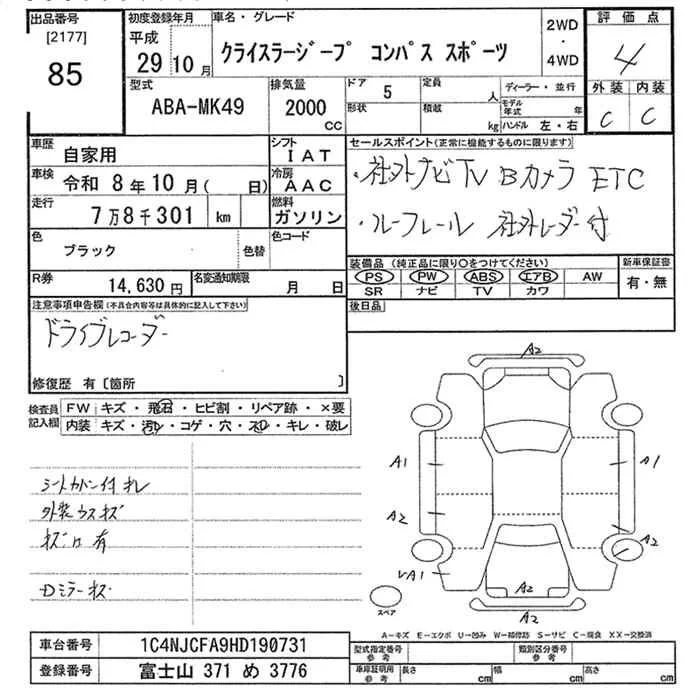 出品番号
[2177]
85
初度登録年月
平成
29 10 月
車名・グレード
クライスラージープ コンパス スポーツ
2WD
・
4WD
評価点
4
外装 内装
C C
型式
ABA-MK49
排気量
2000
CC
ドア 5
形状
定員 人
積載 kg
ディーラー・並行
モデル年式 年
ハンドル 左・右
車歴
自家用
シフト
I A T
車検 令和 8 年 10 月 ( 日)
冷房
A A C
走行
7 万 8 千 301 km
燃料
ガソリン
色
ブラック
色替
色コード
R券
14,630 円
名変通知期限
月 日
セールスポイント(正常に機能するものに限ります)
・社外ナビ TV Bカメラ ETC
・ルーフレール 社外レーダー付
装備品 (純正品に限り〇をつけてください)
PS PW ABS エアB AW
SR ナビ TV カワ
新車保証書
有・無
後日品
注意事項申告欄(不具合内容等は具体的に記入して下さい)
ドライブレコーダー
修復歴 有 [箇所 ]
検査員記入欄
FW キズ・飛石・ヒビ割・リペア跡・×要
内装 キズ・汚レ・コゲ・穴・スレ・キレ・破レ
シートカバー付 オレ
外装ウスキズ
キズ 有
Dミラーキズ
A2
A1
A1
A2
A2
VA1
A2
A2
スペア
A-キズ E-エクボ U-凹み W-補修跡 S-サビ C-腐食 XX-交換済
車台番号 1C4NJCFA9HD190731
登録番号 富士山 371 め 3776
型式指定番号
参考
類別区分番号
参考
車庫証明用
参考
長さ cm
幅 cm
高さ cm